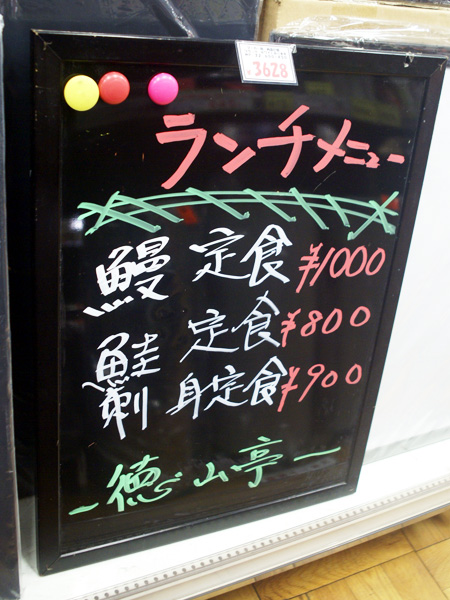 3628
ランチメニュー
鰻 定食 ¥1000
鮭 定食 ¥800
刺身定食 ¥900
-徳山亭-